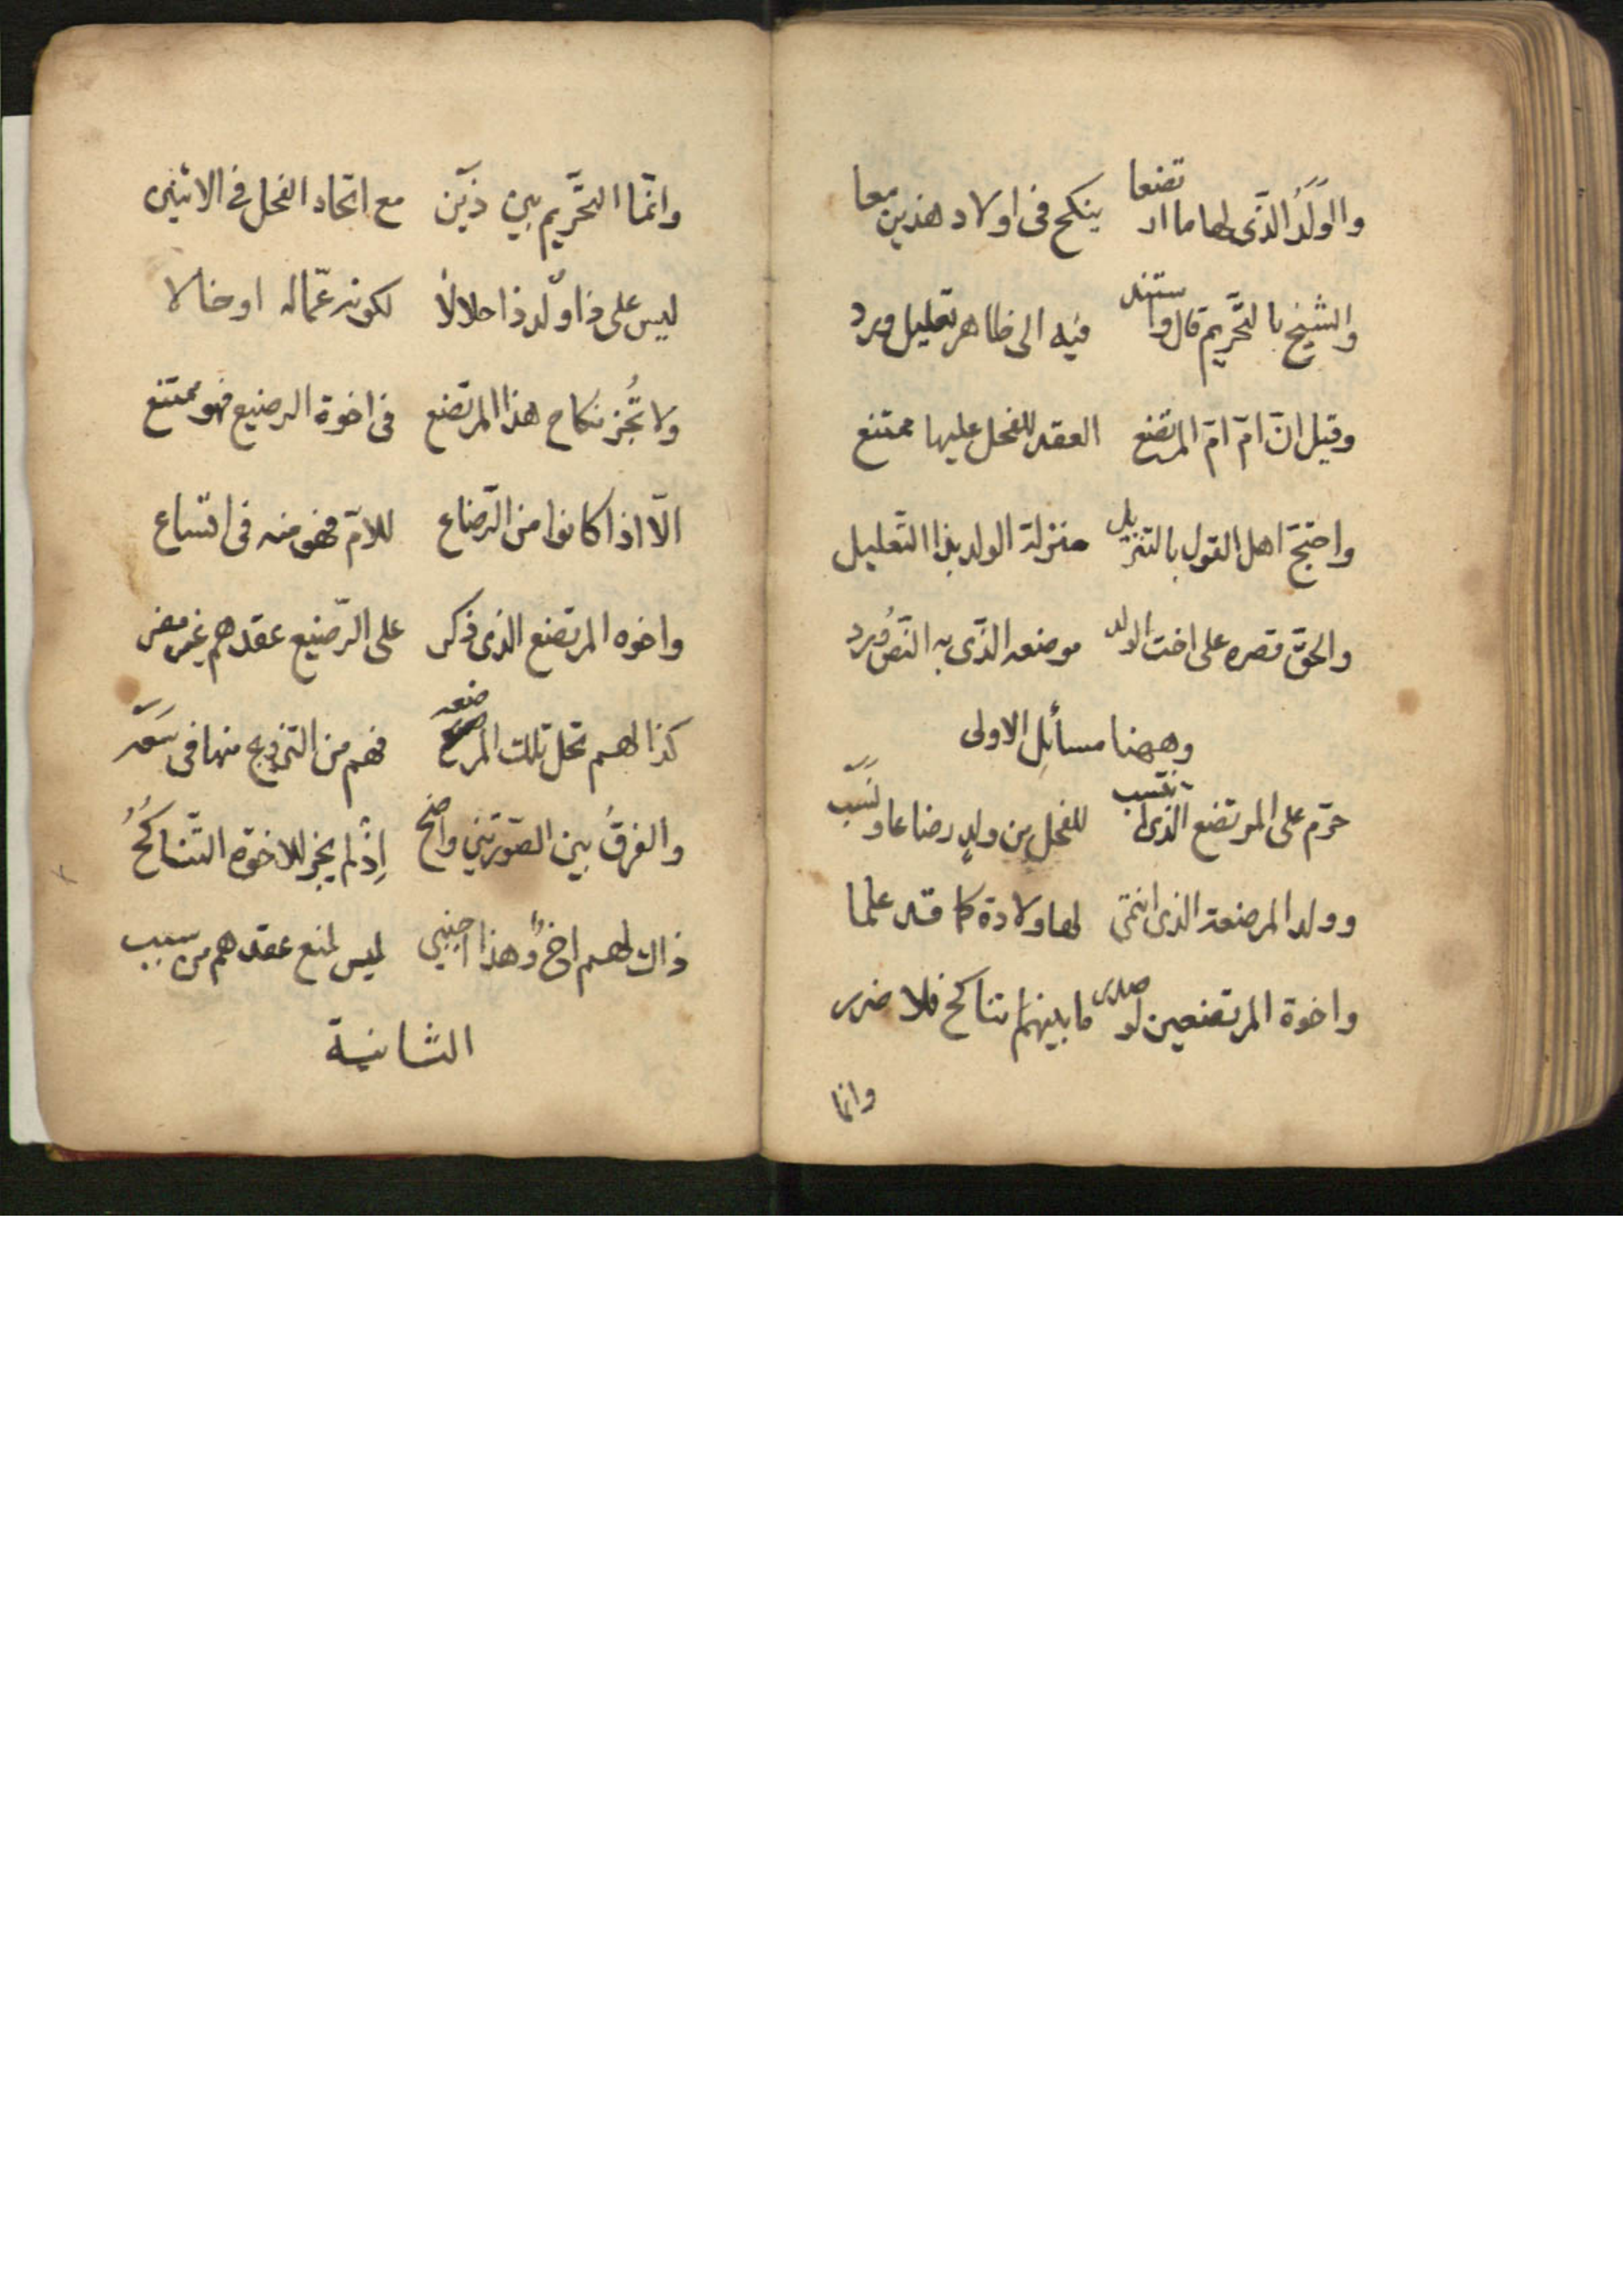 والوَلَدُ الذّى لها ما ارتضعا ينكح فى اولاد هذين معا
والشيخ بالتَّحريم قال واستند فيه الى ظاهر تعليل ورد
وقيل انّ امّ امّ المرتضع العقد للفحل عليها ممتنع
واحتجّ اهل القول بالتنزيل منزلة الولد بذا التّعليل
والحقّ قصره على اخت الولد موضعه الذّى به النّصُ ورد
وههنا مسائِل الاولى
حرّم على المرتضع الذى انتسب للفحل من ولدٍ رضاعا ونَسَب
وولد المرضعة الذى انتمى لها ولادة كما قد علما
واخوة المرتضعين لو صدر ما بينهم تناكح فلا ضرر
وانما
وانّما التحَّريم بين ذَين مع اتحاد الفحل فى الاثنين
ليس على ذا ولد ذا حلالا لكونه عمّا له او خالا
ولا تُجز نكاح هذا المرتضع فى اخوة الرضيع فهو ممتنع
الّا اذا كانوا من الرّضاع للامّ فهو منه فى اتساع
واخوه المرتضع الذى ذكر على الرّضيع عقدهم غير مضر
كذا لهم تحل تلك المرضعه فهم من التزويج منها فى سَعَه
والفرقُ بين الصّورتين واضح اِذْ لم يجز للاخوة التّناكحُ
ذاك لهم اخٌ وهذا اجنبي ليس لمنع عقدهم من سبب
الثانية